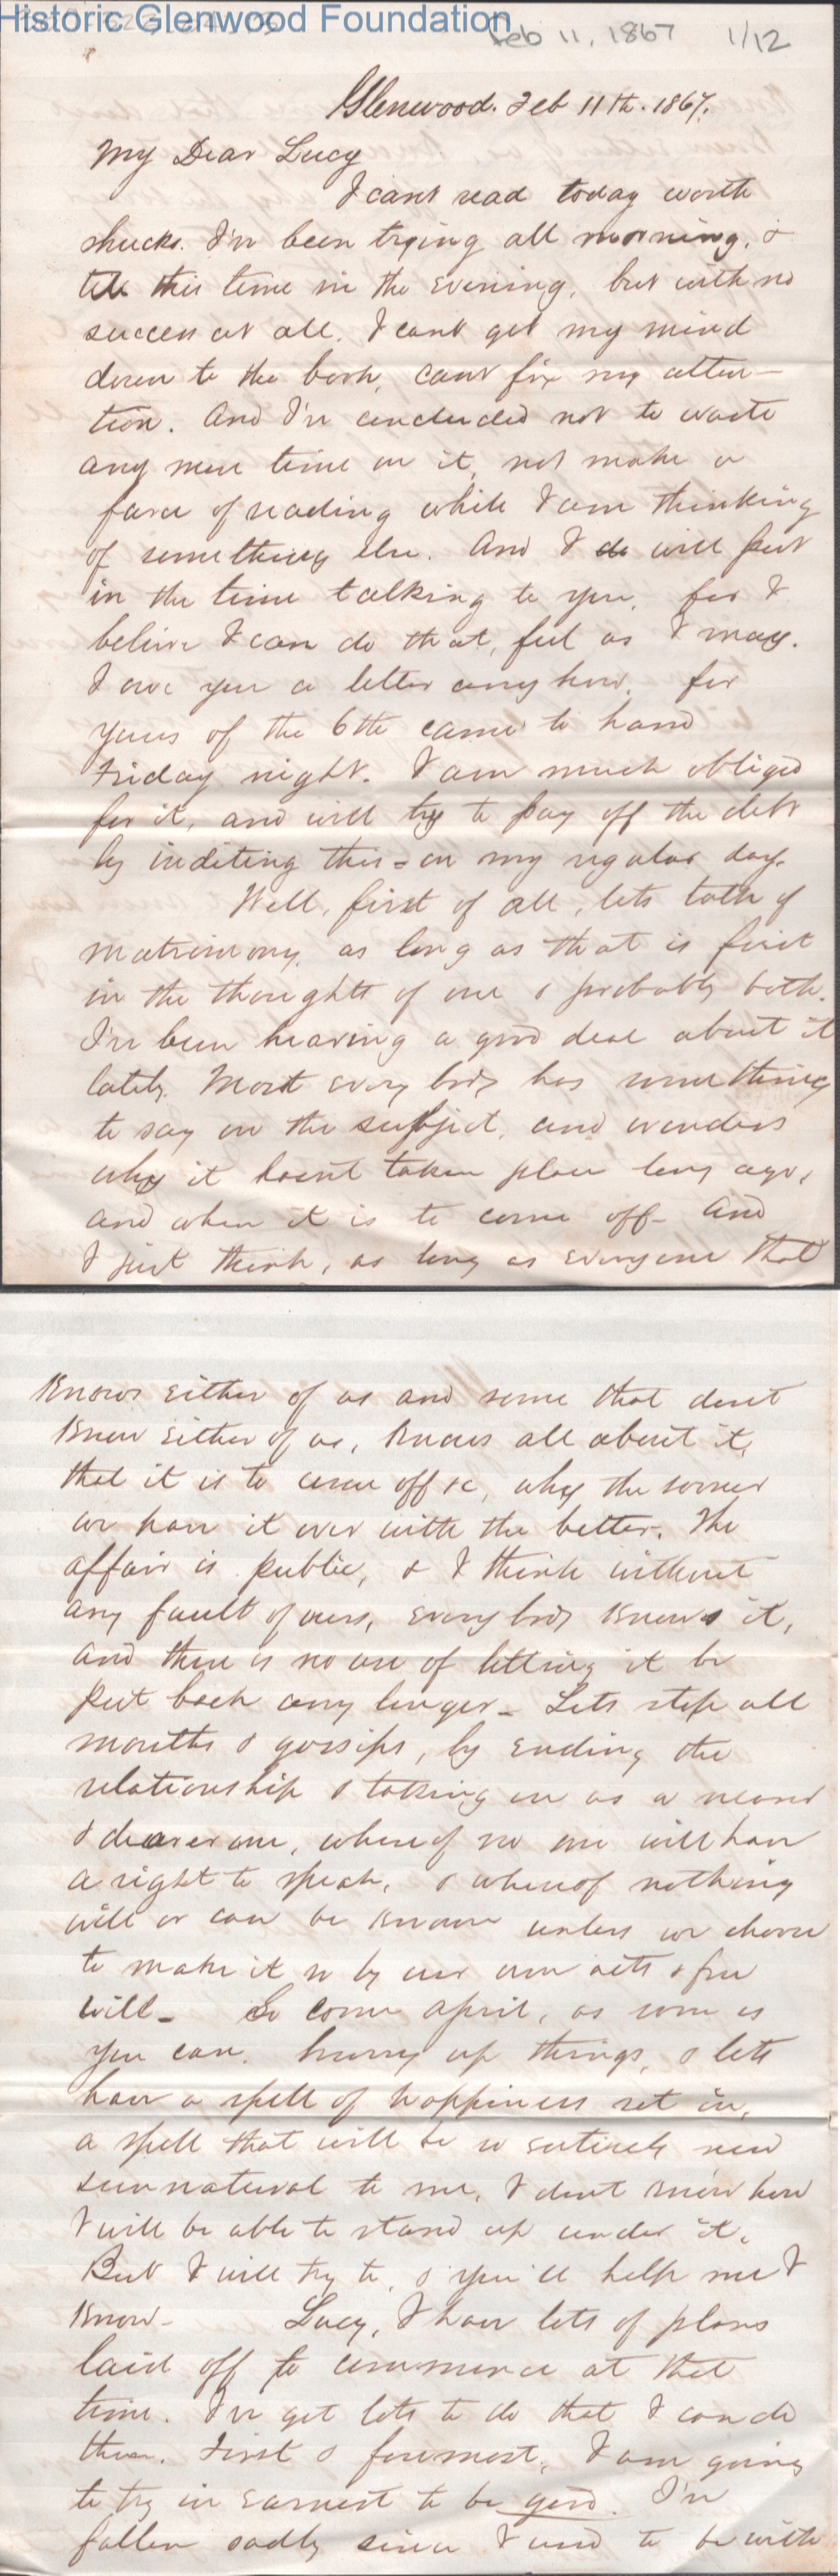 Historic Glenwood Foundation
Feb 11, 1867 1/12
Glenwood. Feb 11th. 1867.
My Dear Lucy
I cant read today worth
shucks. I've been trying all morning, &
till this time in the evening, but with no
success at all. I cant get my mind
down to the book, cant fix my atten-
tion. And I've concluded not to waste
any more time on it, not make a
farce of reading while I am thinking
of something else. And I do will put
in the time talking to you, for I
believe I can do that, feel as I may.
I owe you a letter any how, for
yours of the 6th came to hand
Friday night. I am much obliged
for it, and will try to pay off the debt
by inditing this - on my regular day.
Well, first of all, lets talk of
matrimony, as long as that is first
in the thoughts of one & probably both.
I've been hearing a good deal about it
lately. Most every body has something
to say on the subject, and wonders
why it hasnt taken place long ago,
and when it is to come off - And
I just think, as long as everyone that
knows either of us and some that dont
know either of us, knows all about it,
that it is to come off &c, why the sooner
we have it over with the better. The
affair is public, & I think without
any fault of ours, every body knows it,
and there is no use of letting it be
put back any longer - Lets stop all
mouths & gossips, by ending the
relationship & taking on as a nearer
& dearer one, whereof no one will have
a right to speak, & whereof nothing
will or can be known unless we choose
to make it so by our own acts & free
will - So come April, as soon as
you can. hurry up things, & lets
have a spell of happiness set in,
a spell that will be so entirely new
& unnatural to me, I dont know how
I will be able to stand up under it.
But I will try to, & you'll help me I
know - Lucy, I have lots of plans
laid off to commence at that
time. I've got lots to do that I can do
then. First & foremost, I am going
to try in earnest to be good. I've
fallen sadly since I used to be with